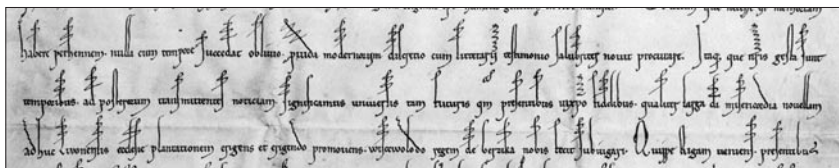 habere perhennem. nulla cum tempore succedat oblivio. p̄vida modernorum diligentio cum litterarū testimonio salubriter novit procurare. Itaq; que nr̄is gesta sunt
temporibus. ad posterorum transmittentes noticiam significamus universis tam futuris qm presentibus xpo fidelibus. qualiter larga di misericordia novellam
adhuc Livonensis ecclesie plantationem erigens et erigendo promovens. wiscewolodo regem de gerzika nobis fecit subiugari. Quippe Rigam veniens. presentibus